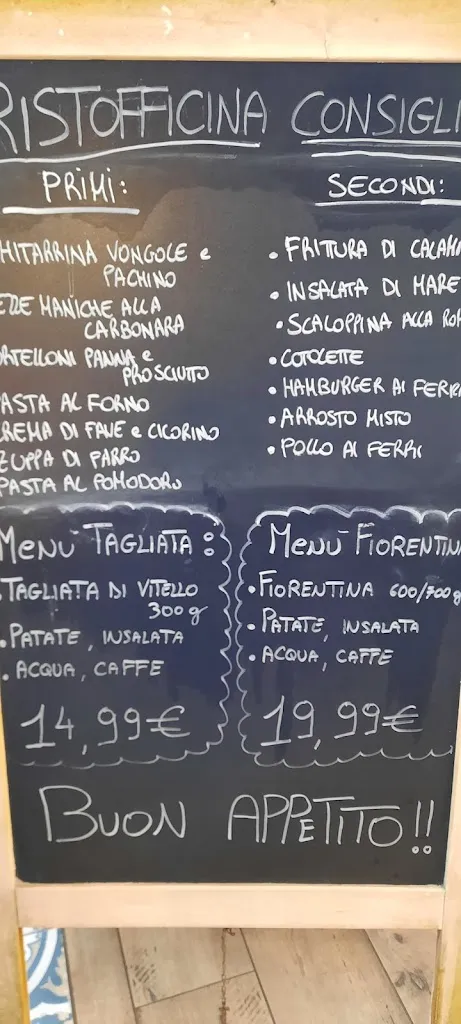 RISTOFFICINA CONSIGLI
PRIMI:
HITARRINA VONGOLE e
PACHINO
EZZE MANICHE ALLA
CARBONARA
ORTELLONI PANNA e
PROSCIUTTO
PASTA AL FORNO
CREMA DI FAVE e CICORINO
ZUPPA DI FARRO
PASTA AL POMODORO
SECONDI:
• FRITTURA DI CALAMA
• INSALATA DI MARE
• SCALOPPINA ALLA ROM
• COTOLETTE
• HAMBURGER AI FERRI
• ARROSTO MISTO
• POLLO AI FERRI
MENÙ TAGLIATA:
• TAGLIATA DI VITELLO
300 g
• PATATE, INSALATA
• ACQUA, CAFFE
14,99€
MENÙ FIORENTINA
• FIORENTINA 600/700g
• PATATE, INSALATA
• ACQUA, CAFFE
19,99€
BUON APPETITO!!